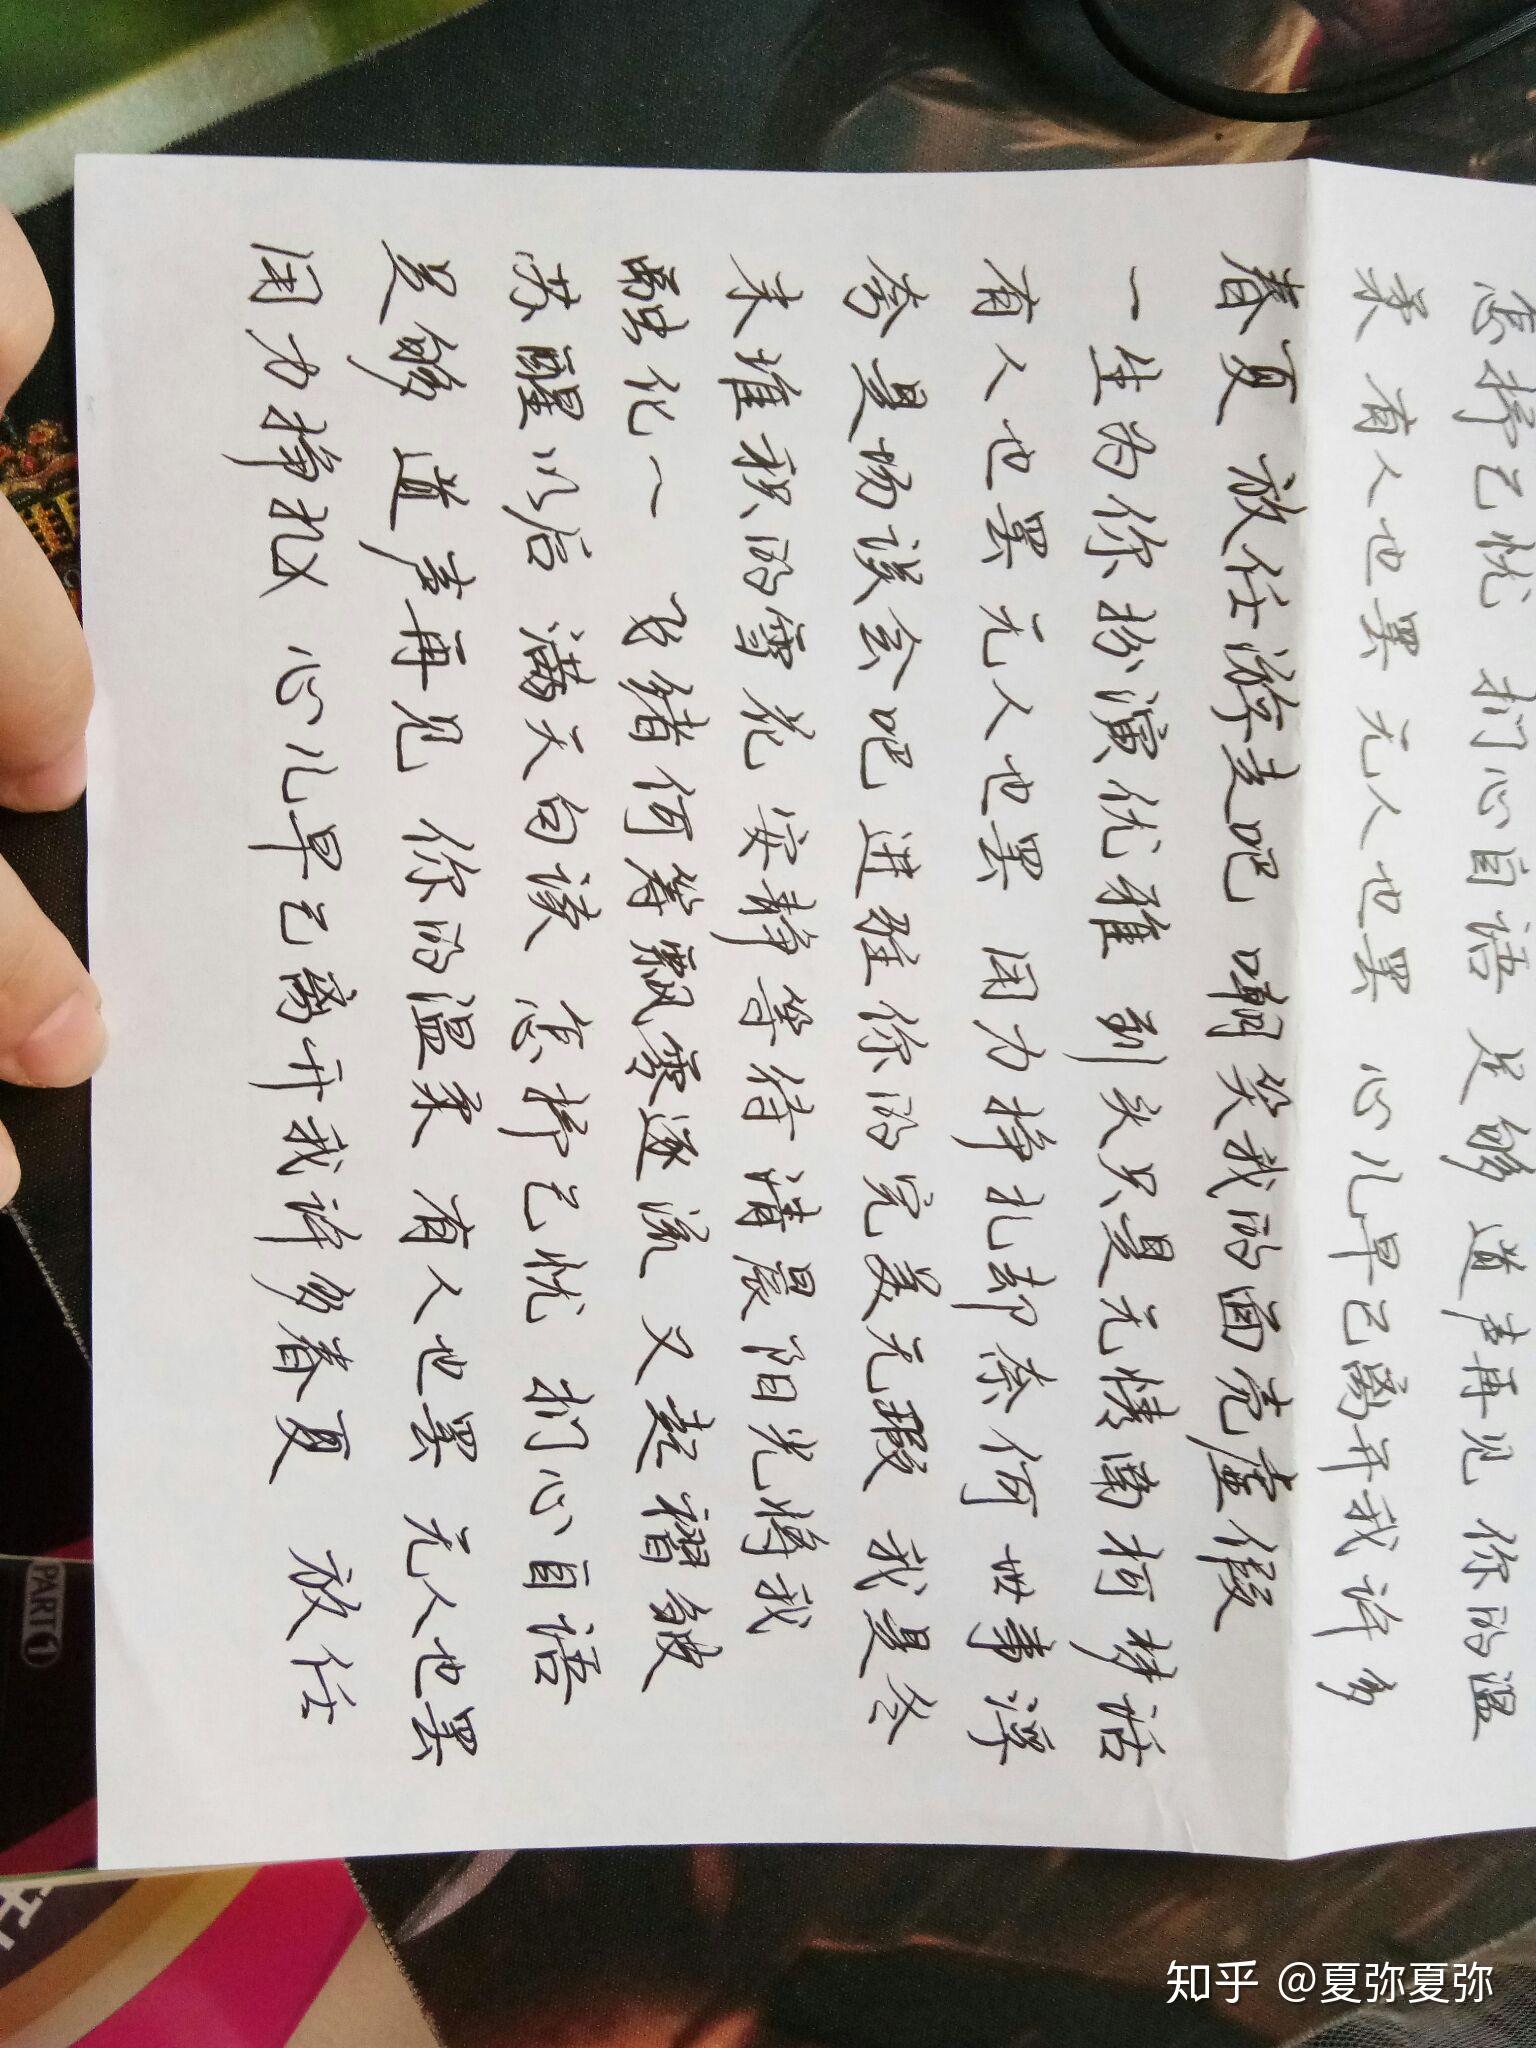 怎抒己忧 扪心自语 足够 道声再见 你的温
柔 有人也罢 无人也罢 心儿早已离开我许多
春夏 放任游走吧 嘲笑我的面壳虚假
一生为你扮演优雅 到头只是无情南柯梦话
有人也罢 无人也罢 用力挣扎却奈何世事浮
夸是场误会吧 进驻你的完美无瑕 我是冬
末堆积的雪花 安静等待清晨阳光将我
融化~ 飞绪何等飘零逐流 又起褶皱
苏醒以后 满天白谈 怎抒己忧 扪心自语
足够 道声再见 你的温柔 有人也罢 无人也罢
用力挣扎 心儿早已离开我许多春夏 放任
PART 1
知乎 @夏弥夏弥